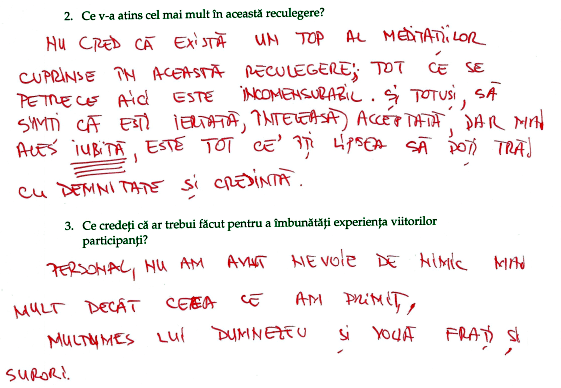 2. Ce v-a atins cel mai mult în această reculegere?
NU CRED CĂ EXISTĂ UN TOP AL MEDITAȚIILOR
CUPRINSE ÎN ACEASTĂ RECULEGERE; TOT CE SE
PETRECE AICI ESTE INCOMENSURABIL. ȘI TOTUSI, SĂ
SIMTI CĂ EȘTI IERTATĂ, ÎNTELEASĂ, ACCEPTATĂ, DAR MAI
ALES IUBITĂ, ESTE TOT CE ÎȚI LIPSEA SĂ POȚI TRĂI
CU DEMNITATE ȘI CREDINTĂ.
3. Ce credeți că ar trebui făcut pentru a îmbunătăți experiența viitorilor
participanți?
PERSONAL, NU AM AVUT NEVOIE DE NIMIC MAI
MULT DECÂT CEEA CE AM PRIMIT,
MULTUMES LUI DUMNEZEU ȘI VOUĂ FRAȚI ȘI
SURORI.